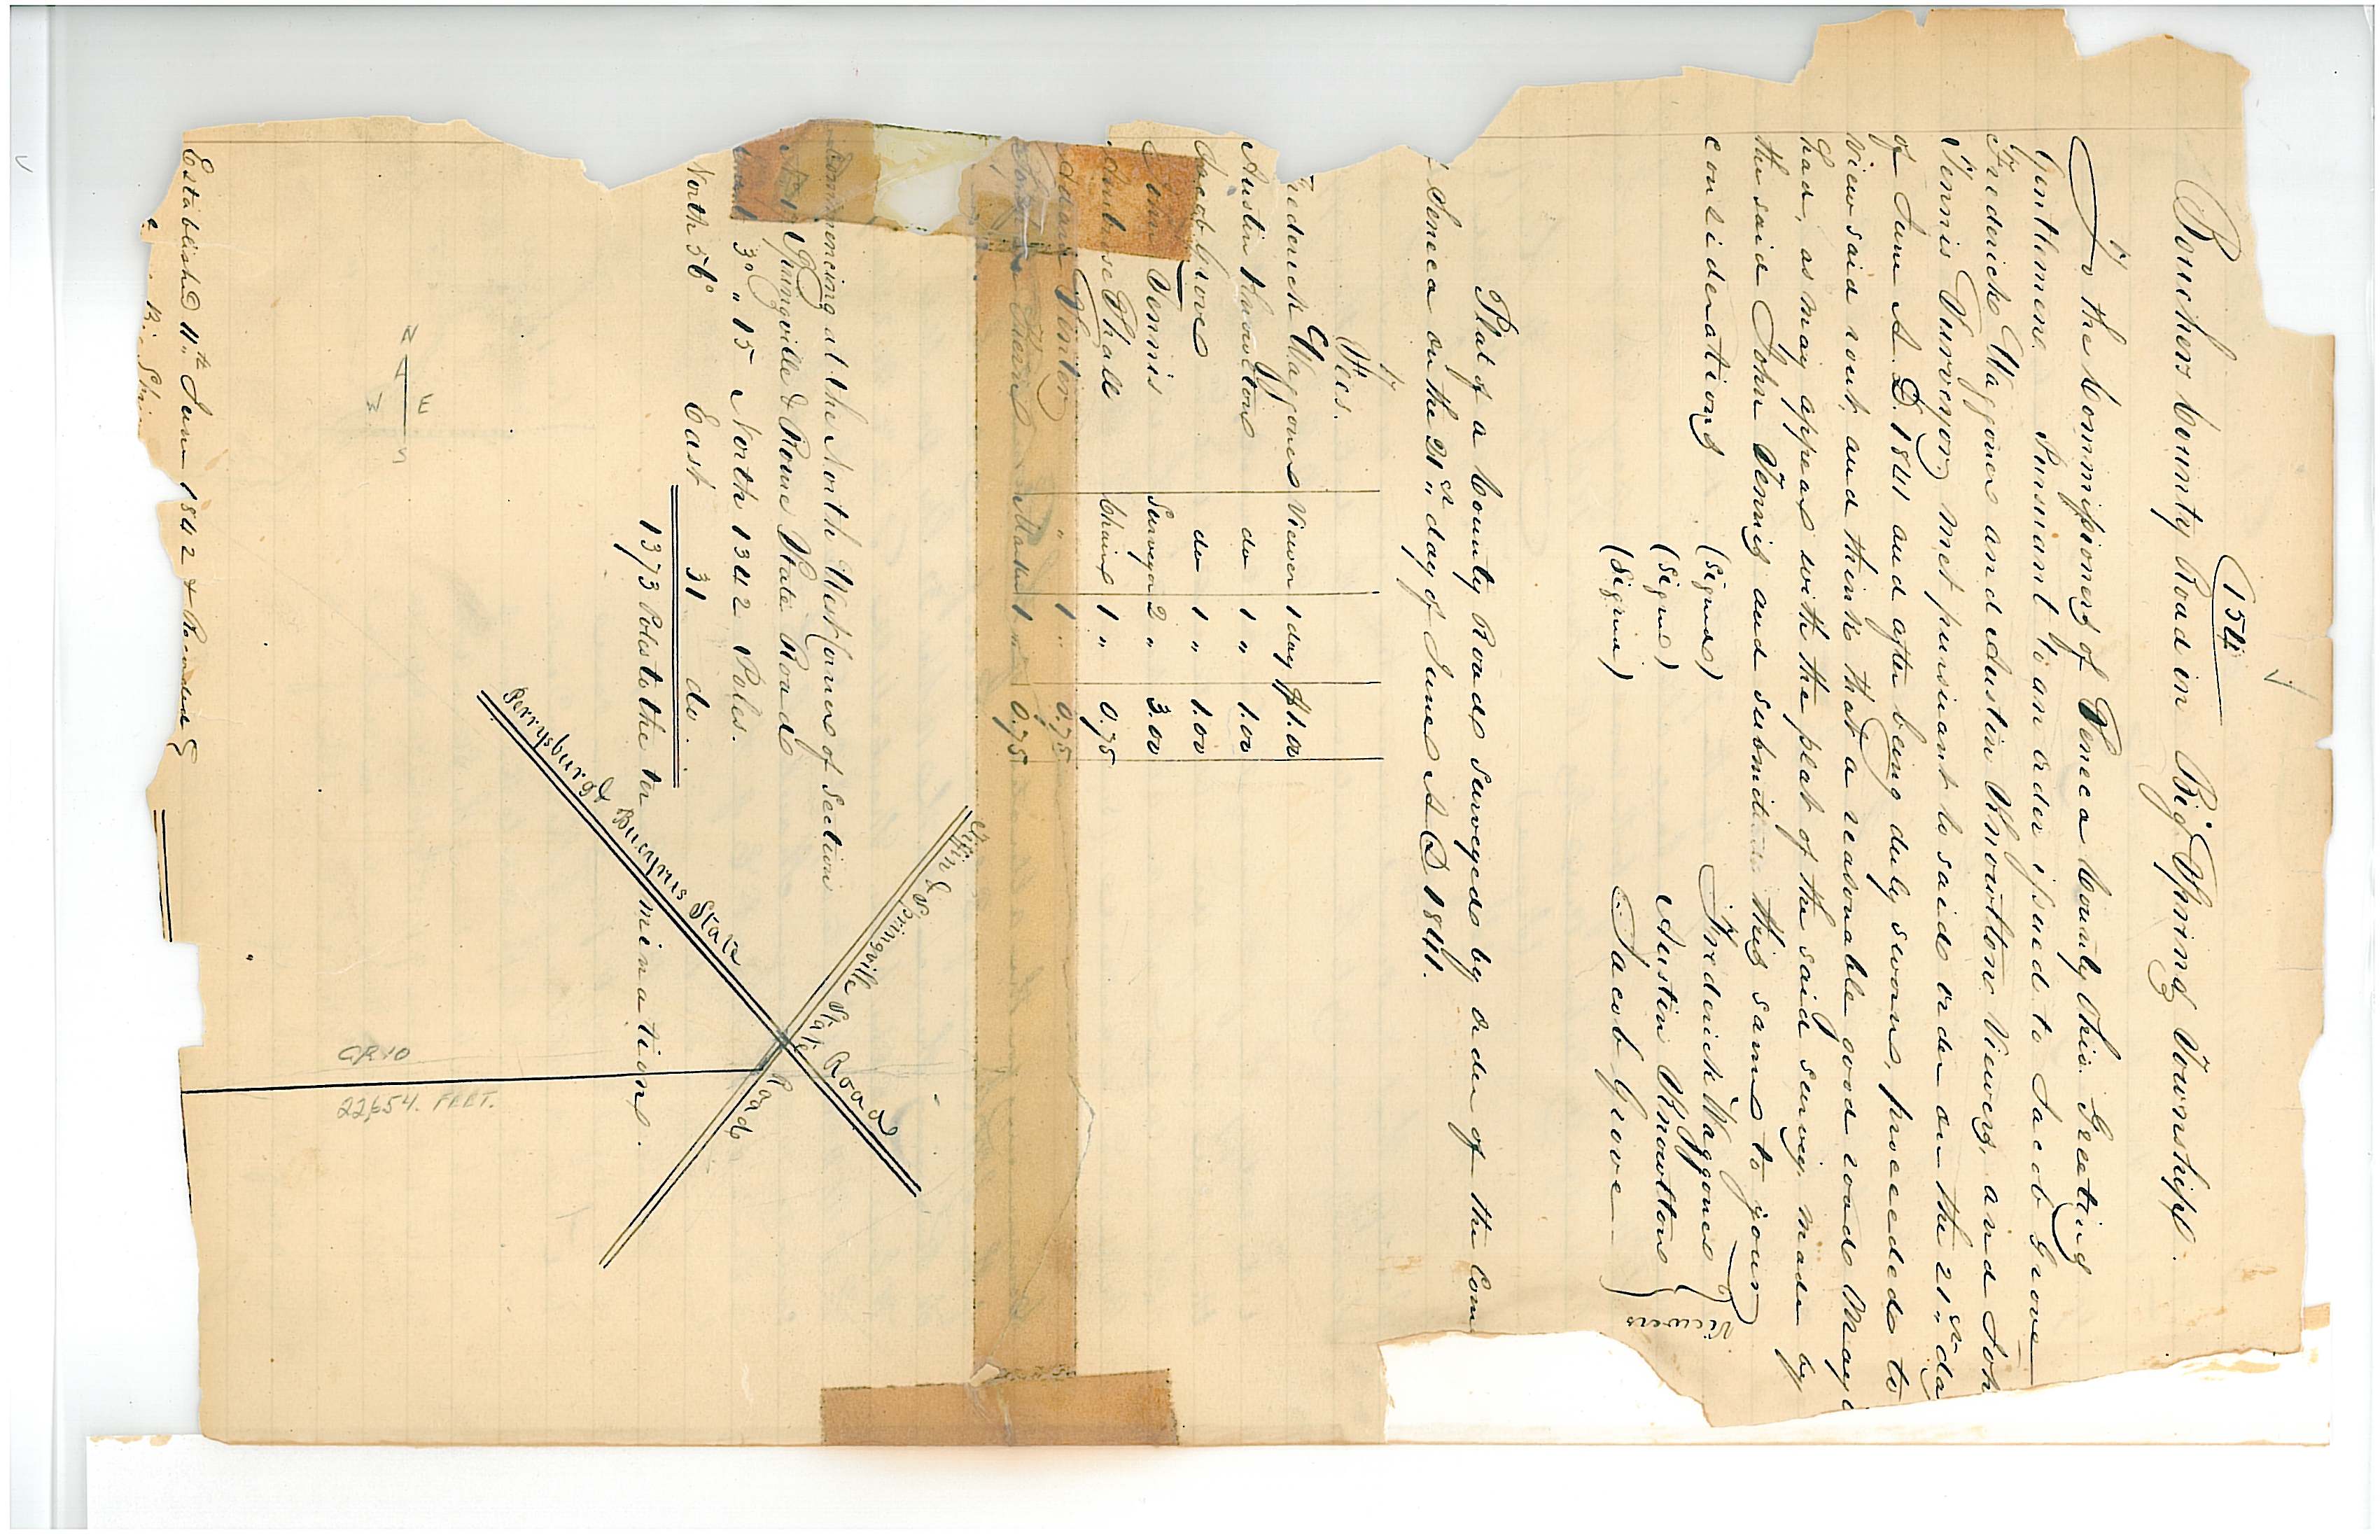 154
Bouchers County Road in Big Spring Township.
To the Commissioners of Seneca County Ohio. Greeting
Gentlemen. Pursuant to an order issued to Jacob Grove
Frederick Waggoner and Austin Knowlton Viewers, and Joh
Tennis Surveyor, met pursuant to said order on the 21st da
of June A.D. 1841 and after being duly sworn, proceeded to
view said rout, and think that a reasonable good road May
had, as may appear with the plat of the said survey made by
the said John Tennis and submit this same to your
considerations
(Signed) Frederick Waggoner
(Signed) Austin Knowlton } Viewers
(Signed) Jacob Grove
Plat of a County Road surveyed by order of the Com
Seneca on the 21st day of June A D 1841.
Fees.
rederick Waggoner Viewer 1 day $1.00
Austin Knowlton do 1 " 1.00
Jacob Grove do 1 " 1.00
John Tennis Surveyor 2 " 3.00
Thall Chain 1 " 0.75
" 1 " 0.75
Marker 1 0.75
Commencing at the North West corner of Section
Springville & Rome State Road
3° " 15 North 1342 Poles.
North 56° East 31 do.
1373 Poles to the ter mination.
N
E
W
S
Tiffin & Springville State Road
Perrysburg & Bucyrus State Road
CR 10
22,654. FEET.
Established 11th June 1842 & Recorded